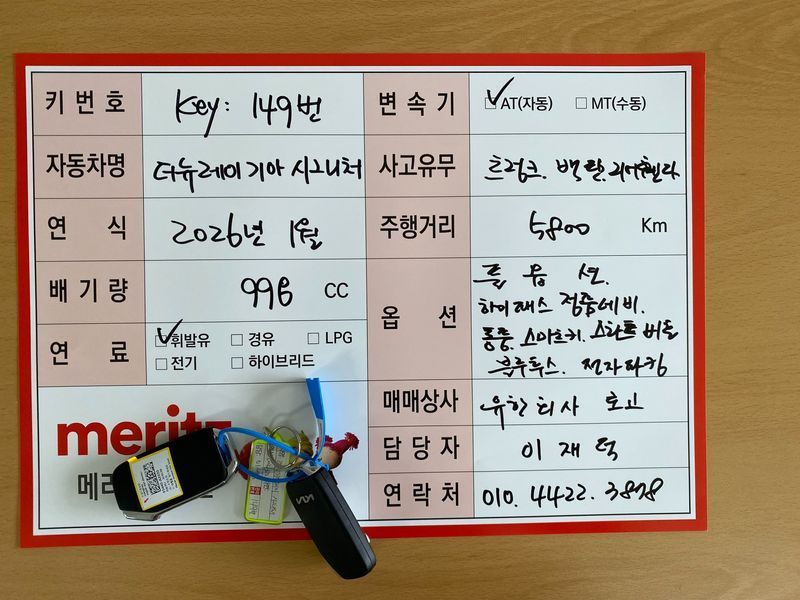 키번호 Key: 149번
변속기 ☑AT(자동) □MT(수동)
자동차명 더뉴레이 기아 시그니처
사고유무 트렁크. 백판. 리어휀다
연식 2026년 1월
주행거리 5800 Km
배기량 998 CC
옵션 풀 옵 션.
하이패스 정품네비.
통풍. 스마트키. 스타트 버튼
블루투스. 전자파킹
연료 ☑휘발유 □경유 □LPG
□전기 □하이브리드
매매상사 유한회사 토고
담당자 이재덕
연락처 010. 4422. 3878
meritz
메리
KIA